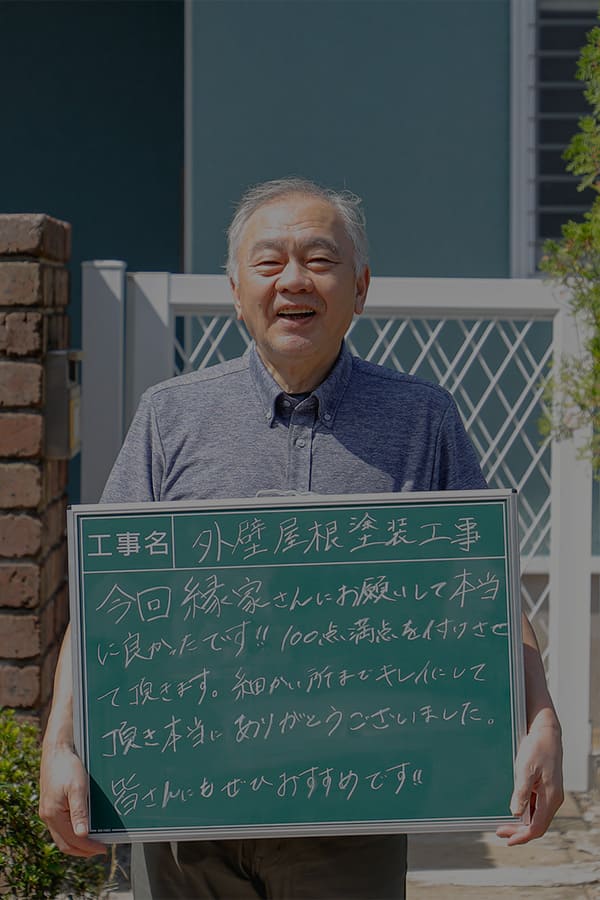 工事名 外壁屋根塗装工事
今回縁家さんにお願いして本当
に良かったです!! 100点満点を付けさせ
て頂きます。細かい所までキレイにして
頂き本当にありがとうございました。
皆さんにもぜひおすすめです!!